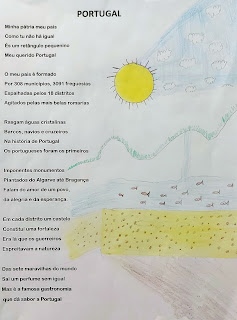 PORTUGAL
Minha pátria meu país
Como tu não há igual
És um retângulo pequenino
Meu querido Portugal
O meu país é formado
Por 308 municípios, 3091 freguesias
Espalhadas pelos 18 distritos
Agitados pelas mais belas romarias
Rasgam águas cristalinas
Barcos, navios e cruzeiros
Na história de Portugal
Os portugueses foram os primeiros
Imponentes monumentos
Plantados do Algarve até Bragança
Falam do amor de um povo,
da alegria e da esperança.
Em cada distrito um castelo
Constitui uma fortaleza
Era lá que os guerreiros
Espreitavam a natureza
Das sete maravilhas do mundo
Sai um perfume sem igual
Mas é a famosa gastronomia
que dá sabor a Portugal